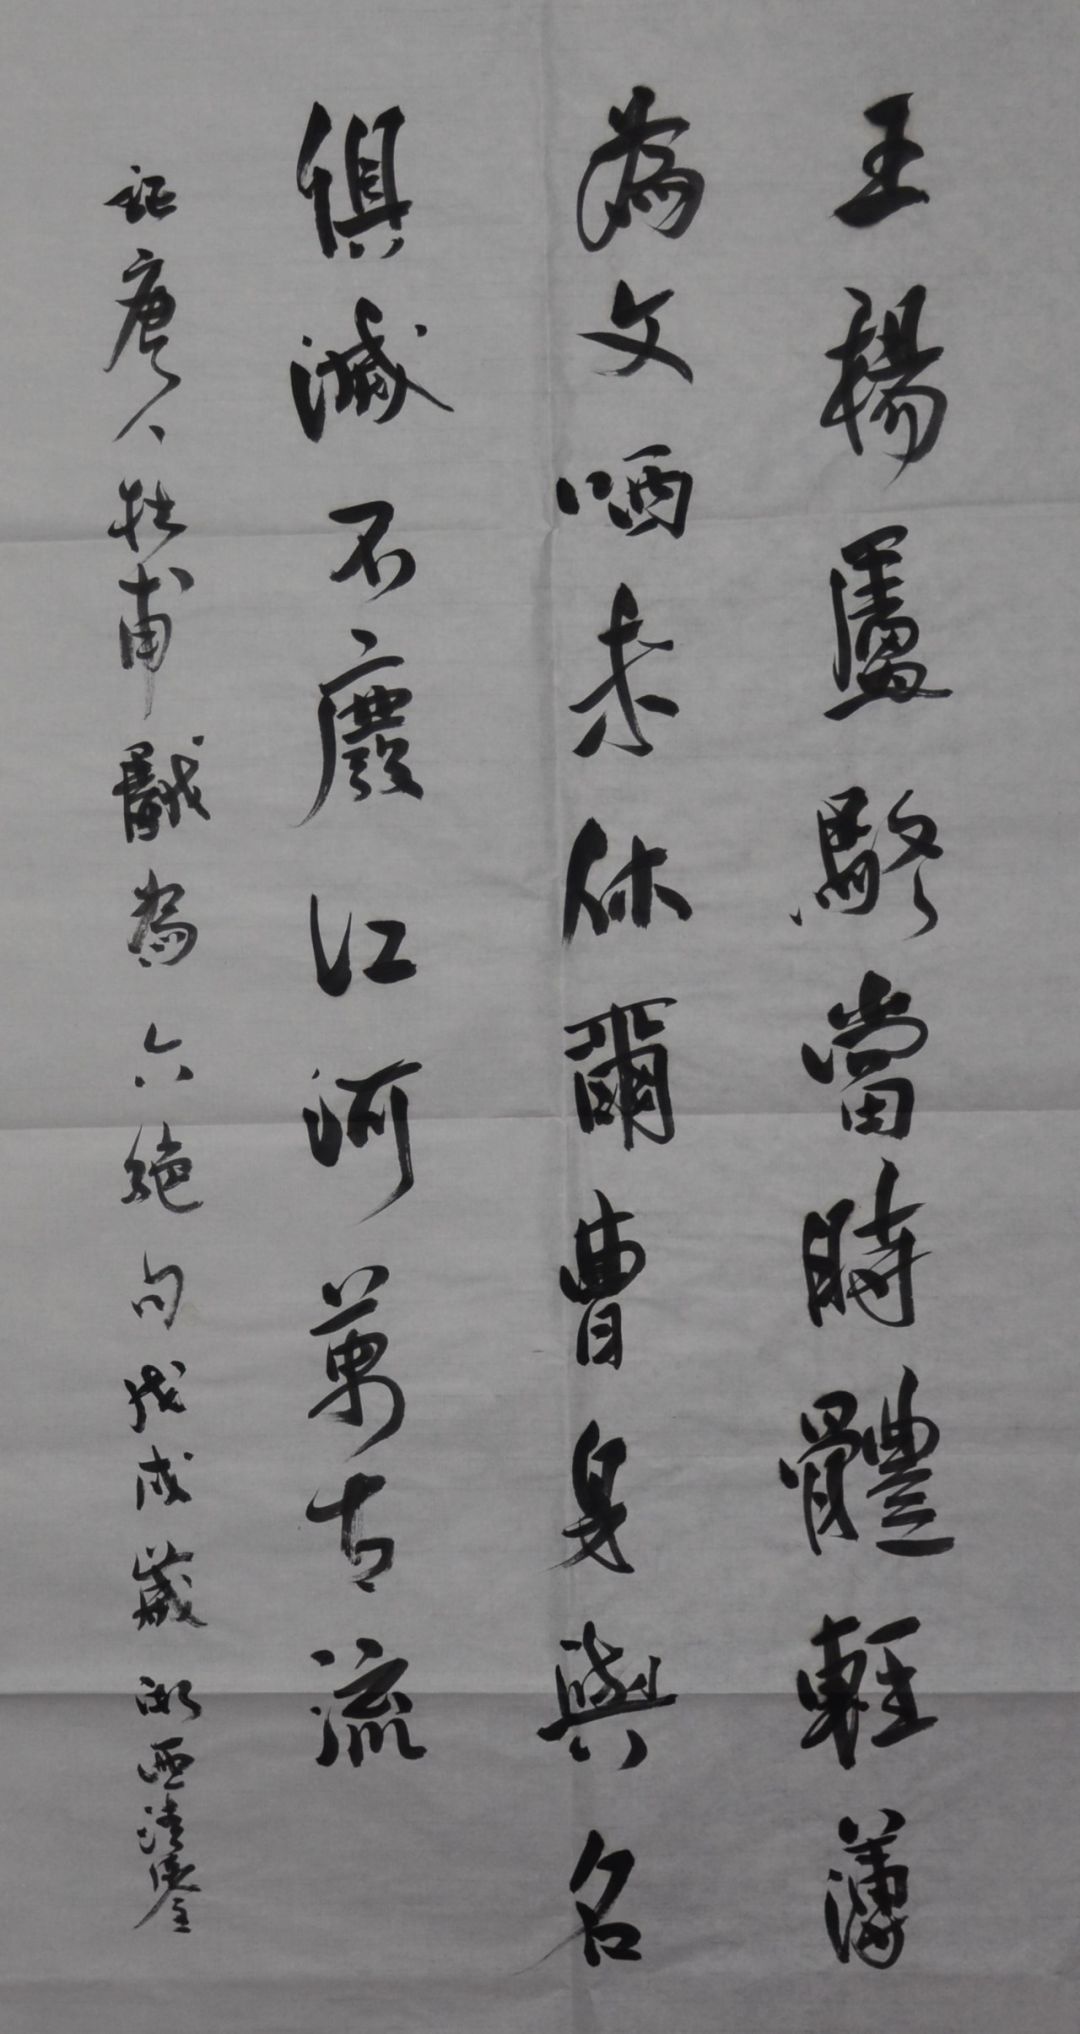 王楊盧駱當時體輕薄
為文哂未休爾曹身與名
俱滅不廢江河萬古流
記唐人杜甫戲為六絕句戊戌歲浙西